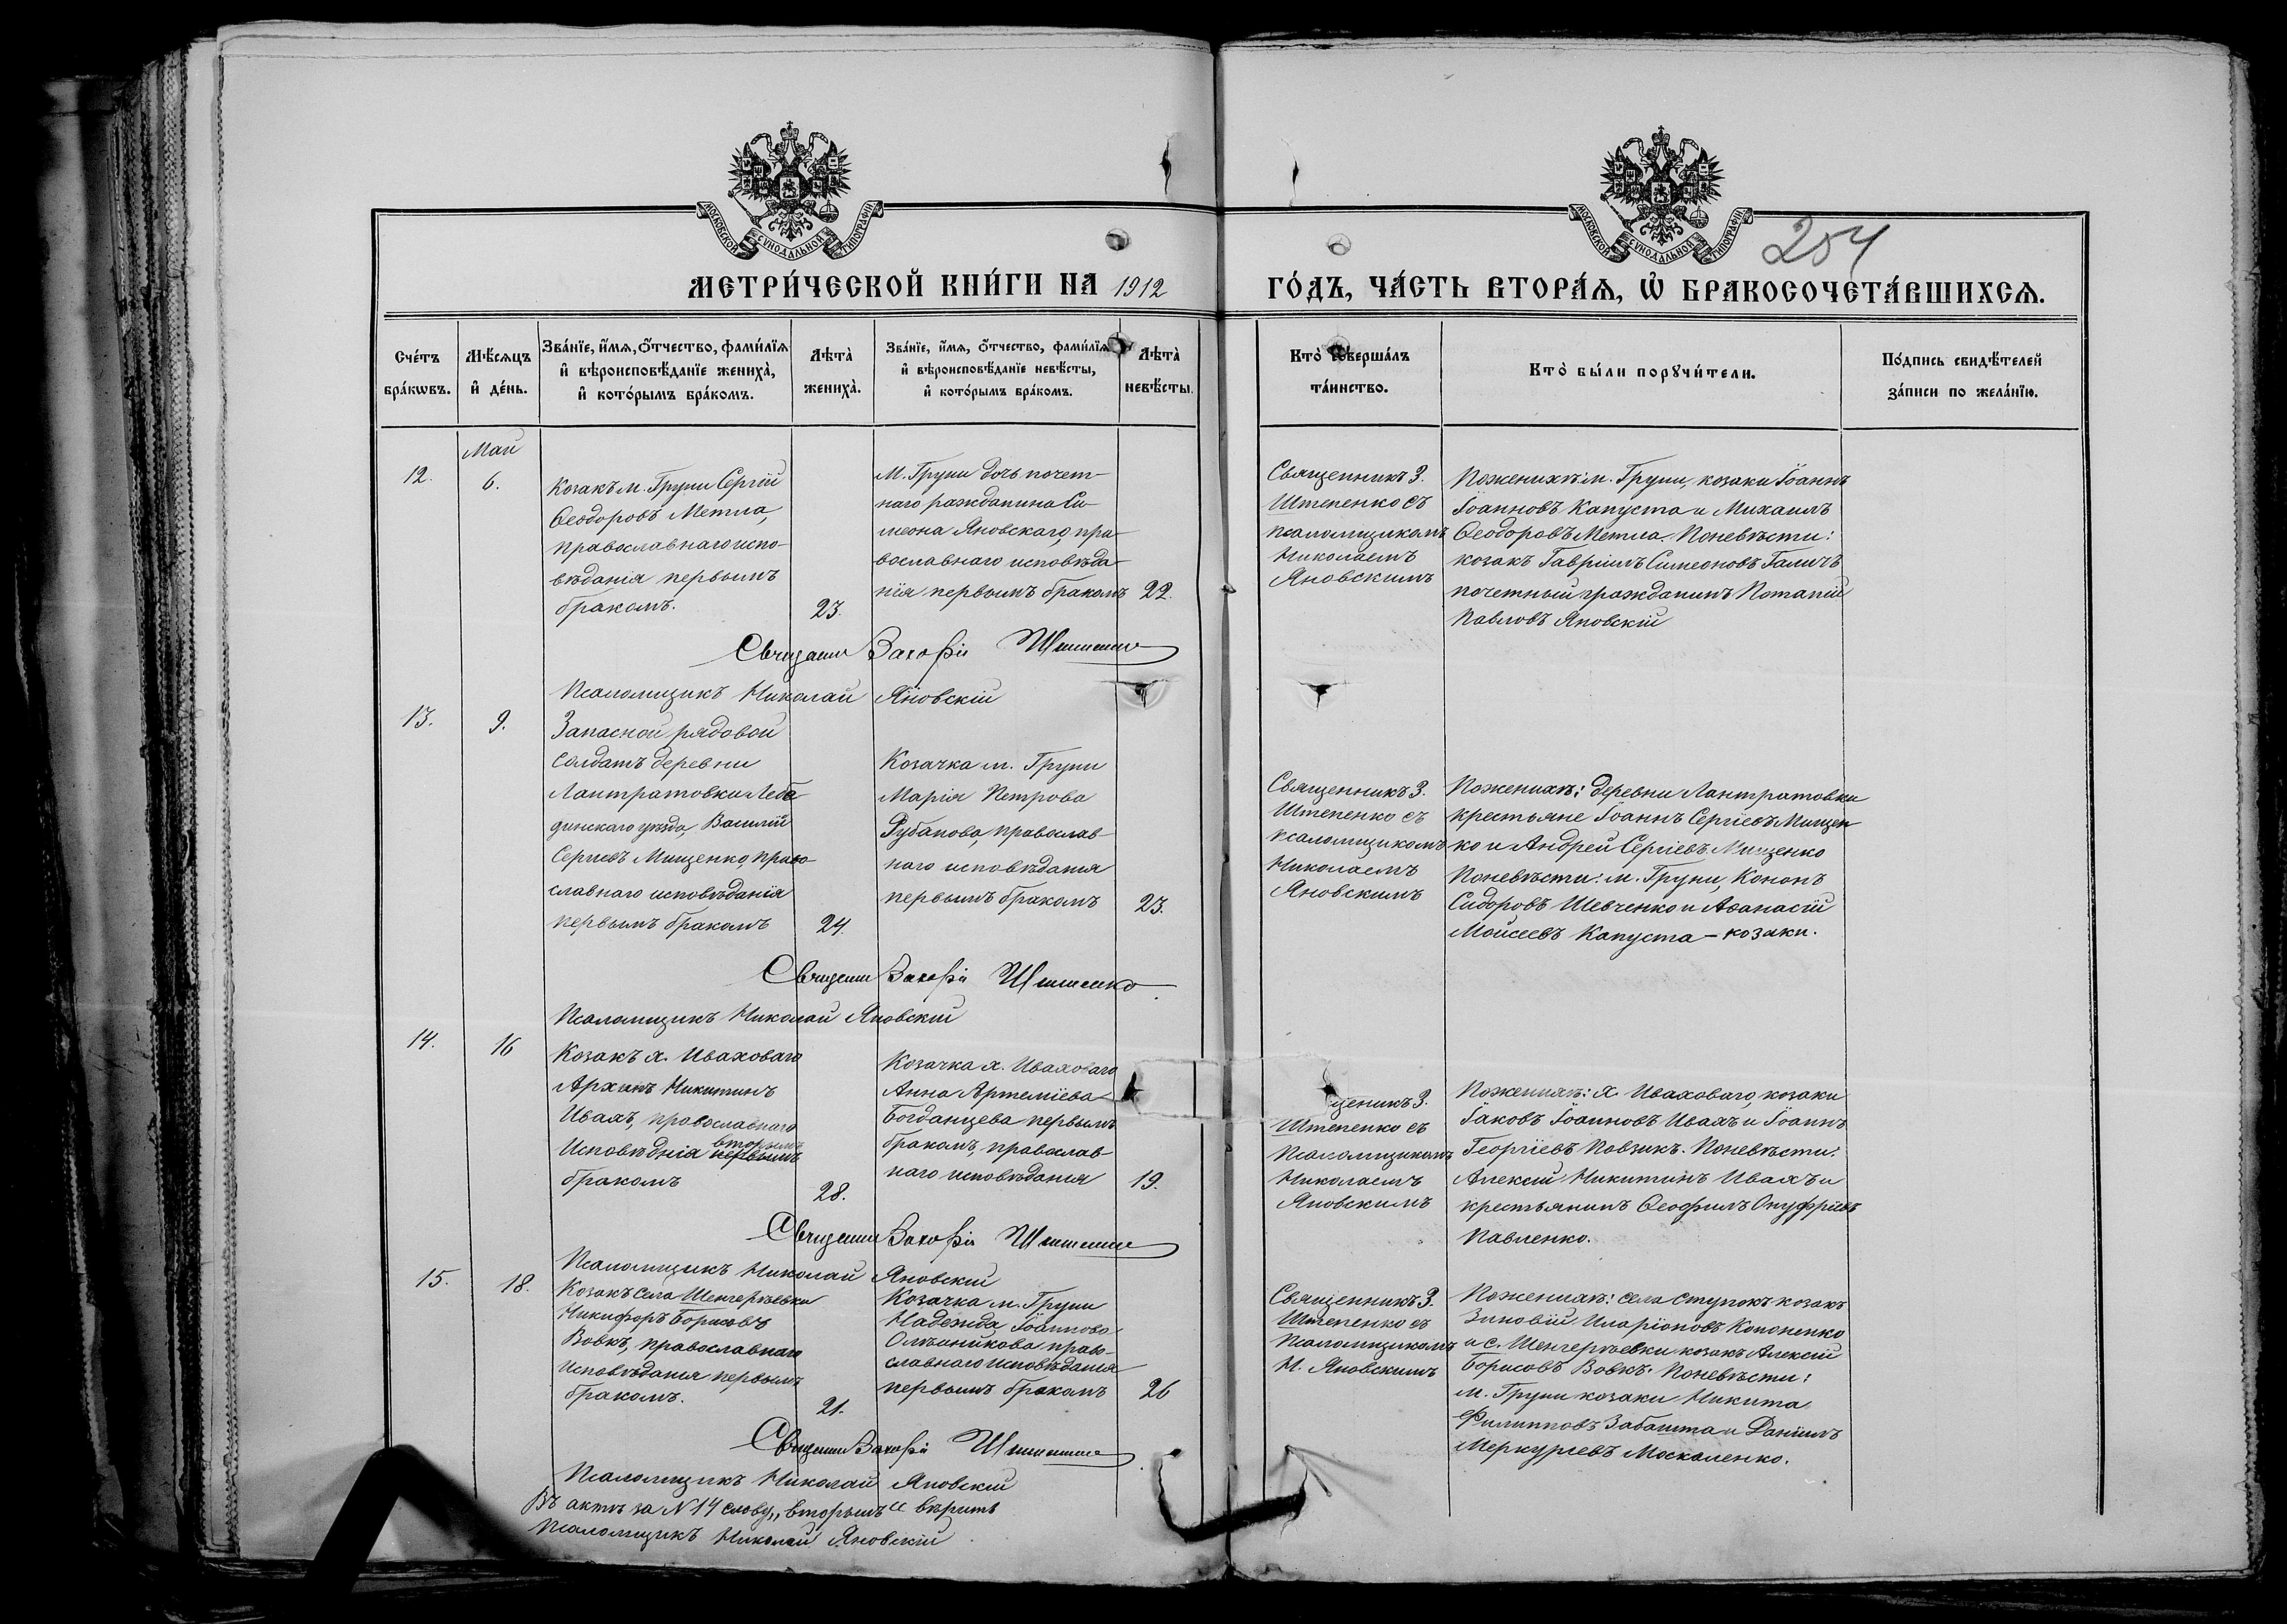 МОСКОВСКОЙ СУНОДАЛЬНОЙ ТИПОГРАФІИ
МОСКОВСКОЙ СУНОДАЛЬНОЙ ТИПОГРАФІИ
254
МЕТРИ́ЧЕСКОЙ КНИ́ГИ НА 1912
ГО́ДЪ, ЧА́СТЬ ВТОРА́Ѧ, Ѡ҆ БРАКОСОЧЕТА́ВШИХСѦ.
Сче́тъ
бра́кѡвъ.
Мѣ́сѧцъ
и҆ де́нь.
Зва́нїе, и҆́мѧ, о҆́тчество, фами́лїѧ
и҆ вѣроисповѣ́данїе жениха̀,
и҆ кото́рымъ бра́комъ.
Лѣта̀
жениха̀.
Зва́нїе, и҆́мѧ, о҆́тчество, фами́лїѧ
и҆ вѣроисповѣ́данїе невѣ́сты,
и҆ кото́рымъ бра́комъ.
Лѣта̀
невѣ́сты.
Кто̀ соверша́лъ
та́инство.
Кто̀ бы́ли порꙋчи́тели.
По́дпись свидѣ́телей
за́писи по жела́нїю.
Май
12.
6.
Козакъ м. Груни Сергій
Ѳеодоровъ Метла,
православнаго испо-
вѣданія первымъ
бракомъ.
23.
М. Груни дочь почет-
наго гражданина Си-
меона Яновскаго, пра-
вославнаго исповѣда-
нія первымъ бракомъ
22.
Священникъ З.
Штепенко съ
псаломщикомъ
Николаемъ
Яновскимъ
По женихѣ: м. Груни, козаки Іоаннъ
Іоанновъ Капуста и Михаилъ
Ѳеодоровъ Метла. По невѣсти:
козакъ Гавріилъ Симеоновъ Галичъ
почетный гражданинъ Потапій
Павловъ Яновскій
Священникъ Захарій Штепенко
Псаломщикъ Николай Яновскій
13.
9.
Запасной рядовой
солдатъ деревни
Лантратовки Лебе-
динскаго уѣзда, Василій
Сергіевъ Мищенко, право-
славнаго исповѣданія
первымъ бракомъ
24.
Козачка м. Груни
Марія Петрова
Рубанова, православ-
наго исповѣданія
первымъ бракомъ
23.
Священникъ З.
Штепенко съ
псаломщикомъ
Николаемъ
Яновскимъ
По женихѣ: деревни Лантратовки
крестьяне Іоаннъ Сергіевъ Мищен-
ко и Андрей Сергіевъ Мищенко
По невѣсти: м. Груни, Кононъ
Сидоровъ Шевченко и Аѳанасій
Моисеевъ Капуста – козаки.
Священникъ Захарій Штепенко
Псаломщикъ Николай Яновскій
14.
16
Козакъ х. Иваховаго
Архипъ Никитинъ
Ивахъ, православнаго
вторымъ
Исповѣднія первымъ
бракомъ
28.
Козачка х. Иваховаго
Анна Артеміева
Богданцева первымъ
бракомъ, православ-
наго исповѣданія
19.
щеникъ З.
Штепенко съ
псаломщикомъ
Николаемъ
Яновскимъ
По женихѣ: х. Иваховаго, козаки
Іаковъ Іоанновъ Ивахъ и Іоаннъ
Георгіевъ Повзикъ. По невѣсти:
Алексій Никитинъ Ивахъ и
крестьянинъ Ѳеофилъ Онуфріевъ
Павленко.
Священникъ Захарій Штепенко
Псаломщикъ Николай Яновскій
15.
18.
Козакъ села Шенгерѣевки
Никифоръ Борисовъ
Вовкъ, православнаго
Исповѣданія первымъ
бракомъ.
21.
Козачка м. Груни
Надежда Іоаннова
Олѣйникова право-
славнаго Исповѣданія
первымъ бракомъ
26
Священникъ З.
Штепенко съ
псаломщикомъ
Н. Яновскимъ
По женихѣ: села Ступокъ козакъ
Зиновій Иларіоновъ Кононенко
и с. Шенгерѣевки козакъ Алексій
Борисовъ Вовкъ. По невѣсти:
м. Груни козаки Никита
Филипповъ Забашта и Даніилъ
Меркуріевъ Москаленко.
Священникъ Захарій Штепенко
Псаломщикъ Николай Яновскій
Въ актѣ за N 14 слову „вторымъ“ вѣрить
Псаломщикъ Николай Яновскій